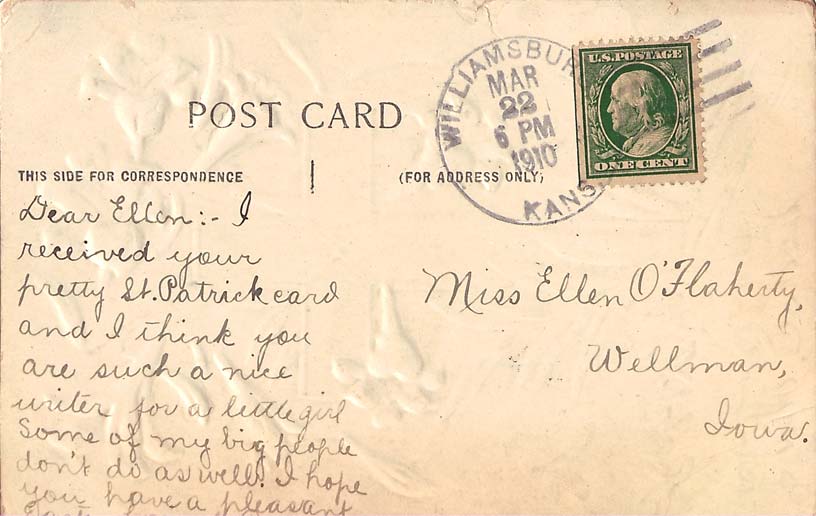 WILLIAMSBUR
MAR
22
6 PM
1910
KANS
U.S. POSTAGE
ONE CENT
POST CARD
THIS SIDE FOR CORRESPONDENCE
(FOR ADDRESS ONLY)
Dear Ellen:- I
received your
pretty St. Patrick card
and I think you
are such a nice
writer for a little girl
Some of my big people
don't do as well. I hope
you have a pleasant
Miss Ellen O'Flaherty,
Wellman,
Iowa.